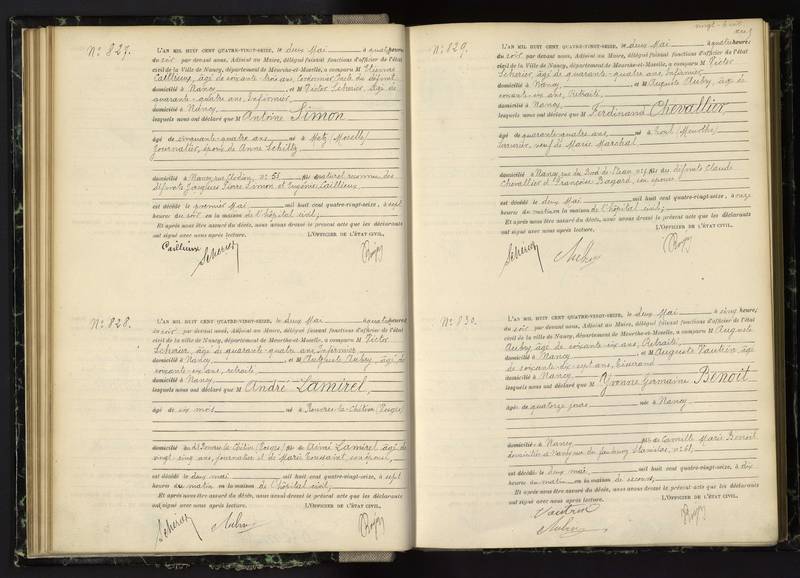 N° 827.
L'AN MIL HUIT CENT QUATRE-VINGT-SEIZE, le deux Mai à quatre heures
du soir par devant nous, Adjoint au Maire, délégué faisant fonctions d'officier de l'état
civil de la Ville de Nancy, département de Meurthe-et-Moselle, a comparu M Etienne
Cailleux, âgé de soixante-trois ans, Cordonnier, du défunt
domicilié à Nancy et M Victor Scherier, âgé de
quarante-quatre ans, Infirmier
domicilié à Nancy
lesquels nous ont déclaré que M Antoine Simon
âgé de cinquante-quatre ans né à Metz (Moselle)
Journalier, époux de Anne Schiltz
domicilié à Nancy, rue Clodion, n° 55 fils naturel reconnu des
défunts Jacques Pierre Simon et Eugénie Cailleux
est décédé le premier Mai mil huit cent quatre-vingt-seize, à sept
heures du soir en la maison de l'hôpital civil;
Et après nous être assuré du décès, nous avons dressé le présent acte que les déclarants
ont signé avec nous après lecture. L'OFFICIER DE L'ÉTAT CIVIL,
Cailleux
Scherier
N° 828.
L'AN MIL HUIT CENT QUATRE-VINGT-SEIZE, le deux Mai à quatre heures
du soir par devant nous, Adjoint au Maire, délégué faisant fonctions d'officier de l'état
civil de la ville de Nancy, département de Meurthe-et-Moselle, a comparu M Victor
Scherier, âgé de quarante-quatre ans, Infirmier
domicilié à Nancy et M Auguste Aubry, âgé de
soixante-six ans, retraité
domicilié à Nancy
lesquels nous ont déclaré que M André Lamirel,
âgé de six mois né à Rouvres-la-Chétive (Vosges)
domicilié à Rouvres-la-Chétive (Vosges) fils de Aimé Lamirel âgé de
vingt cinq ans, journalier et de Marie Toussaint, son épouse,
est décédé le deux mai mil huit cent quatre-vingt-seize, à sept
heures du matin en la maison de l'hôpital civil,
Et après nous être assuré du décès, nous avons dressé le présent acte que les déclarants
ont signé avec nous après lecture. L'OFFICIER DE L'ÉTAT CIVIL,
Scherier Aubry
N° 829.
L'AN MIL HUIT CENT QUATRE-VINGT-SEIZE, le deux Mai à quatre heures
du soir par devant nous, Adjoint au Maire, délégué faisant fonctions d'officier de l'état
civil de la Ville de Nancy, département de Meurthe-et-Moselle, a comparu M Victor
Scherier, âgé de quarante-quatre ans, Infirmier
domicilié à Nancy et M Auguste Aubry, âgé de
soixante-six ans, Retraité
domicilié à Nancy
lesquels nous ont déclaré que M Ferdinand Chevallier,
âgé de quarante-quatre ans né à Toul (Meurthe)
Serrurier, veuf de Marie Marchal
domicilié à Nancy, rue du Bord de l'eau, fils des défunts Claude
Chevallier et Françoise Bagard, son épouse
est décédé le deux Mai mil huit cent quatre-vingt-seize, à onze
heures du matin en la maison de l'hôpital civil;
Et après nous être assuré du décès, nous avons dressé le présent acte que les déclarants
ont signé avec nous après lecture. L'OFFICIER DE L'ÉTAT CIVIL,
Scherier Aubry
N° 830.
L'AN MIL HUIT CENT QUATRE-VINGT-SEIZE, le deux Mai à cinq heures
du soir par devant nous, Adjoint au Maire, délégué faisant fonctions d'officier de l'état
civil de la ville de Nancy, département de Meurthe-et-Moselle, a comparu M Auguste
Aubry, âgé de soixante-six ans, Retraité
domicilié à Nancy et M Auguste Vautrin, âgé
de soixante-dix-sept ans, Tisserand
domicilié à Nancy
lesquels nous ont déclaré que M Yvonne Germaine Benoit
âgée de quatorze jours née à Nancy
domiciliée à Nancy fille de Camille Marie Benoit
domiciliée à Nancy, rue du faubourg Stanislas, n° 61,
est décédée le deux mai mil huit cent quatre-vingt-seize, à dix
heures du matin en la maison de secours;
Et après nous être assuré du décès, nous avons dressé le présent acte que les déclarants
ont signé avec nous après lecture. L'OFFICIER DE L'ÉTAT CIVIL,
Vautrin
Aubry